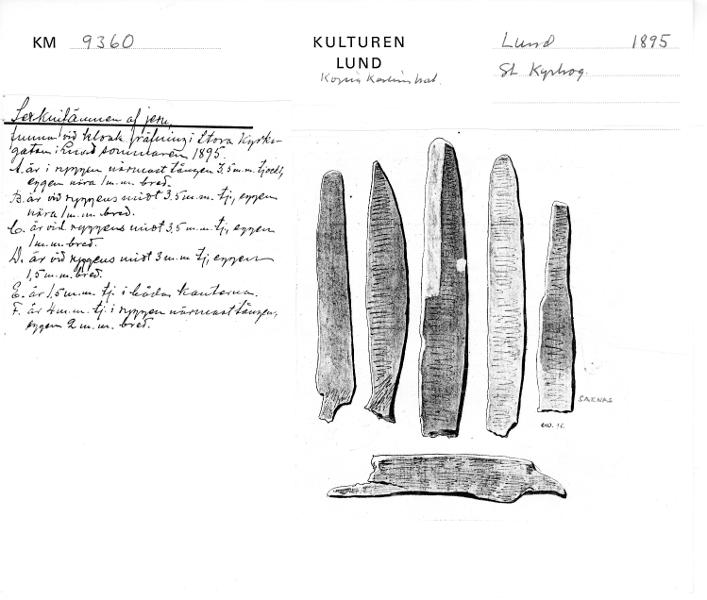 KM 9360
KULTUREN
LUND
Lund 1895
St Kyrkog.
af jern,
funna vid kloak gräfning i Stora Kyrko-
gatan i Lund sommaren 1895.
A. är i ryggen närmast tången 3,5 m.m. tjock,
eggen nära 1 m.m. bred.
B. är vid ryggens midt 3,5 m.m. tj., eggen
nära 1 m.m. bred.
C. är vid ryggens midt 3,5 m.m. tj., eggen
1 m.m. bred.
D. är vid ryggens midt 3 m.m. tj., eggen
1,5 m.m. bred.
E. är 1,5 m.m. tj. i båda kanterna.
F. är 4 m.m. tj. i ryggen närmast tången,
eggen 2 m.m. bred.
SAKNAS